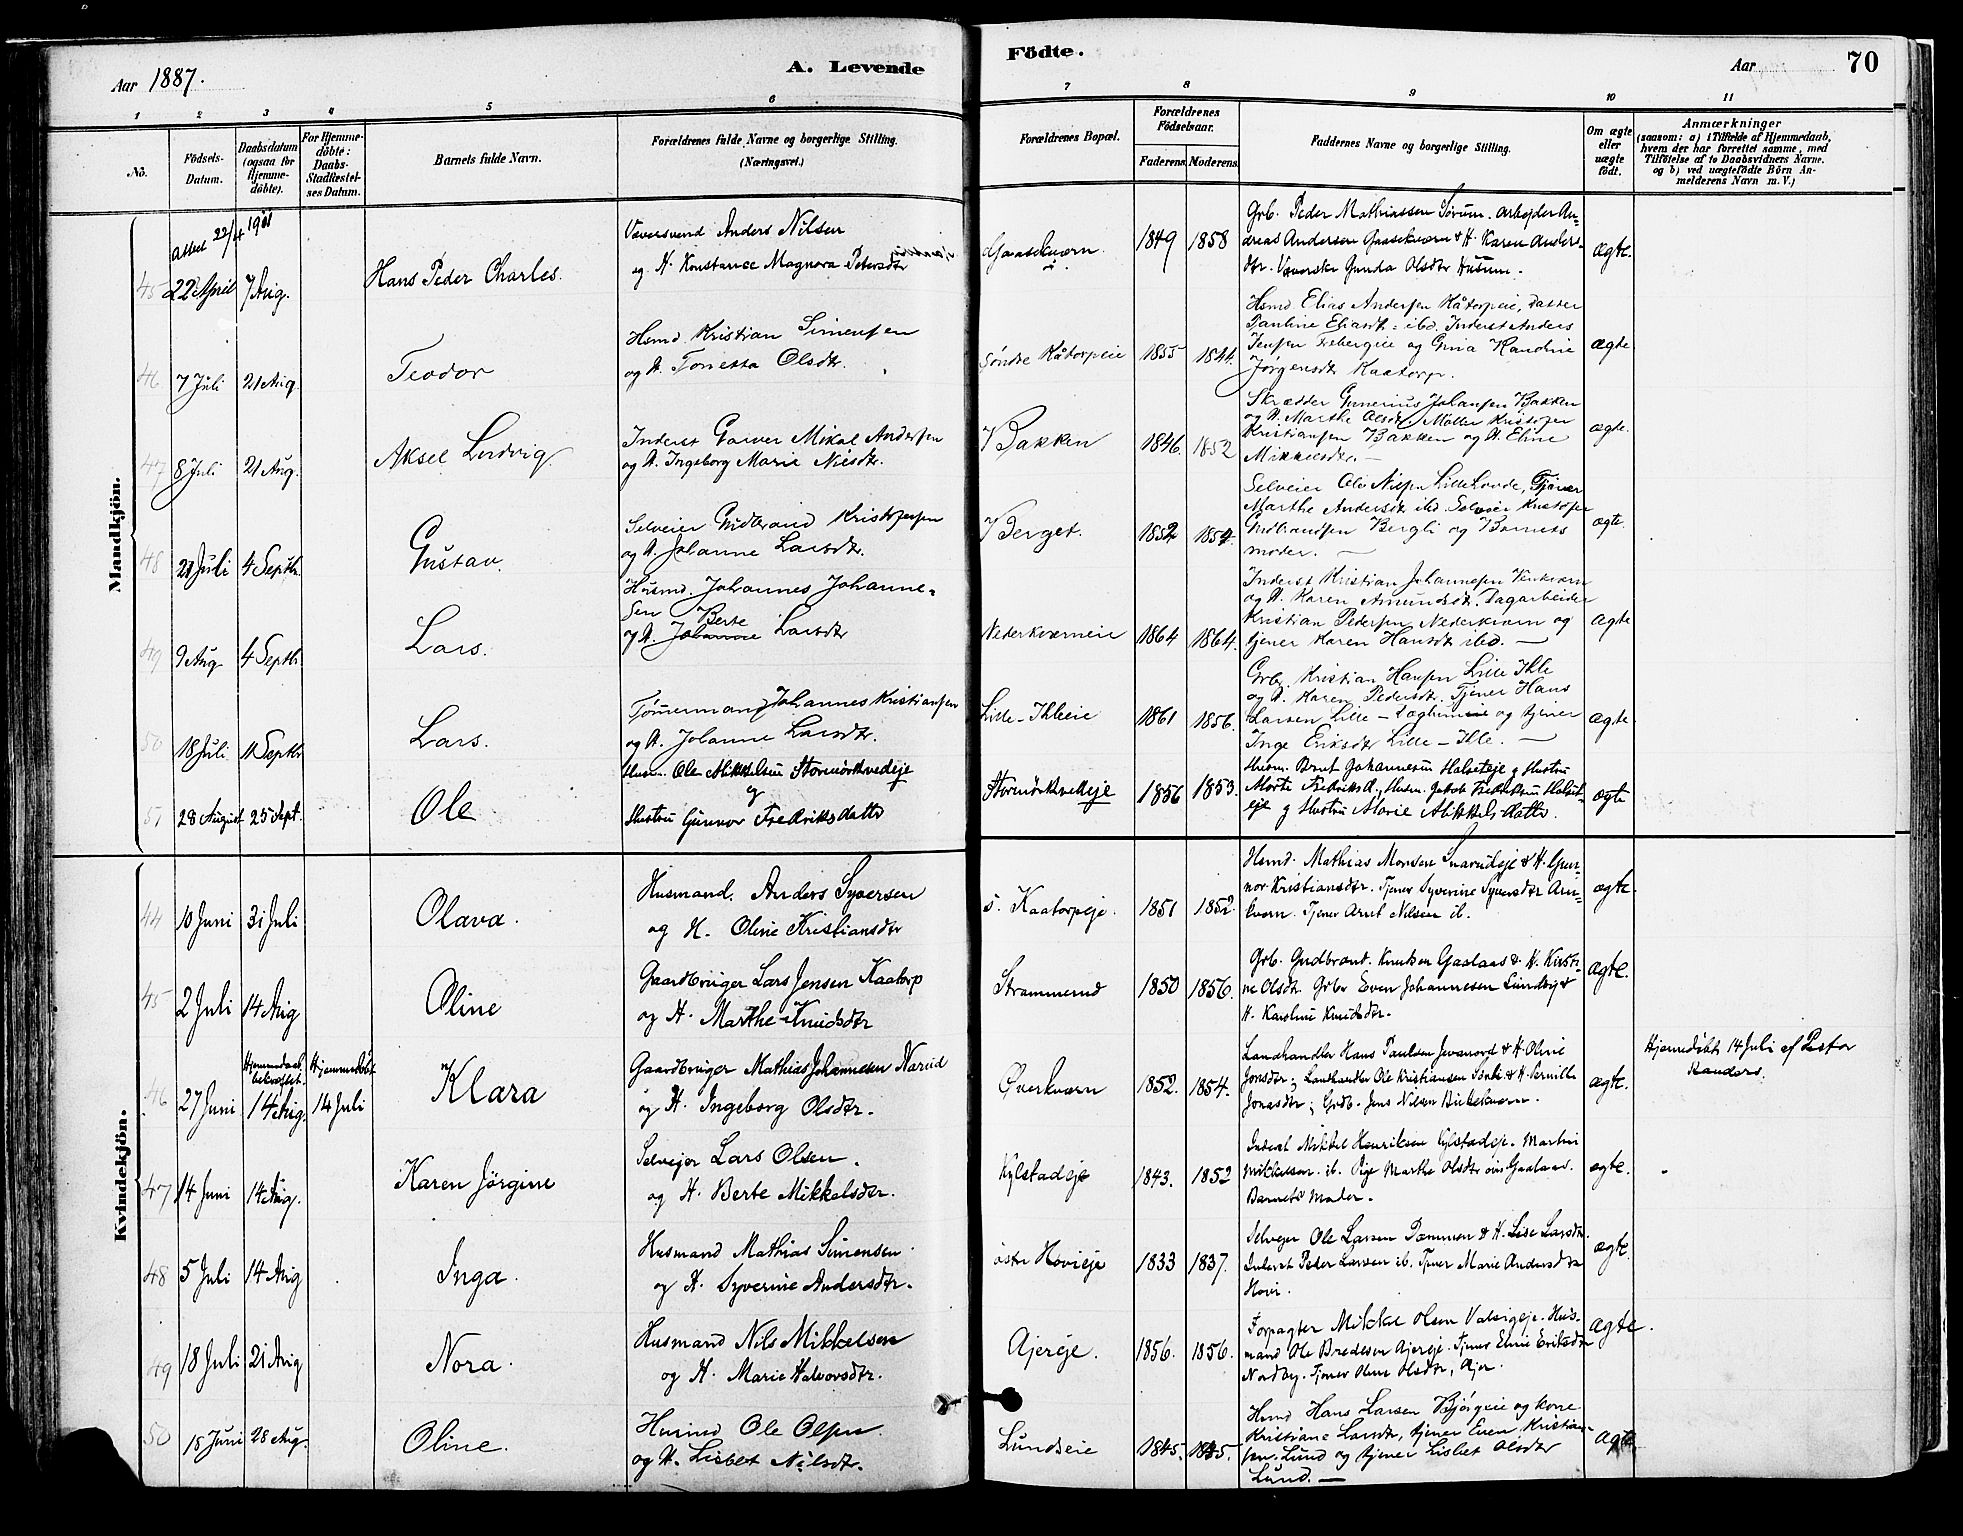 Aar 1887.
A. Levende
Födte.
Aar
70
1 2 3 4 5 6 7 8 9 10 11
No.
Födsels-
Datum.
Daabsdatum
(ogsaa for
Hjemme-
döbte).
For Hjemme-
döbte:
Daabs-
Stadfæstel-
ses Datum.
Barnets fulde Navn.
Forældrenes fulde Navne og borgerlige Stilling.
(Næringsvei.)
Forældrenes Bopæl.
Forældrenes
Födselsaar.
Faderens. Moderens.
Faddernes Navne og borgerlige Stilling.
Om ægte
eller
uægte
født.
Anmærkninger
(saasom: a) i Tilfælde af Hjemmedaab,
hvem der har forrettet samme, med
Tilföielse af to Daabsvidners Navne.
og b) ved uægtefödte Börn An-
melderens Navn m. V.)
Mandkjön.
Attest 22/4 1901
45 22 April 7 Aug. Hans Peder Charles.
Væversvend Anders Nilsen
og H. Konstance Magnora Petersdtr
Gaasekværn. 1849 1858
Grb. Peder Mathiassen Sørum. Arbejder An-
dreas Andersen Gaasekværn & H. Karen Anders-
dtr. Væverske Gunda Olsdtr Husum.
ægte.
46 7 Juli 21 Aug. Teodor
Hsmd Kristian Simensen
og H. Tonetta Olsdtr.
Søndre Kåtorpeie 1855 1844.
Hsmd Elias Andersen Kåtorpeie, Datter
Pauline Eliasdtr. ibd. Inderst Anders
Jensen og Gina Kandine
Jørgensdtr Kaatorp.
ægte
47 8 Juli 21 Aug. Aksel Ludvig
Inderst Garver Mikal Andersen
og H. Ingeborg Marie Nilsdtr.
Bakken 1846. 1852
Skrædder Gunerius Johansen Bakken
og H. Marthe Olsdtr. Møller Kristofer
Kristiansen Bakken og H. Eline
Mikkelsdtr.
ægte.
48 21 Juli 4 Septbr. Gustav.
Selveier Gudbrand Kristofersen
og H. Johanne Larsdtr.
Berget. 1852 1854.
Selveier Ole Nilsen Lille Lovde, Tjener
Marthe Andersdtr ibd. Selveier Kristofer
Gudbrandsen Bergli og Barnets
moder.
ægte.
49 9 Aug 4 Septbr. Lars.
Husmd. Johannes Johanne-
sen Berte
og H. Johanne Larsdtr
Nederkværneie 1864 1864.
Inderst Kristian Johannesen
og H. Karen Amundsdtr. Dagarbeider
Kristian Pedersen Nederkværn og
tjener Karen Hansdtr ibd.
ægte
50 18 Juli 11 Septbr Lars.
Tømmermand Johannes Kristiansen
og H. Johanne Larsdtr.
Lille-Ihleie 1861 1856.
Grb. Kristian Hansen Lille Ihle
og H. Karen Pedersdtr. Tjener Hans
Larsen Lille- og tjener
Inge Eriksdtr Lille-Ihle.
ægte
51 28 August 25 Sept. Ole
Husm. Ole Mikkelsen Stormörkvedeje
og
Hustru Gunnor Fredriksdatter
Stormörkvedeje 1856 1853.
Husm. Bernt Johannesen Halseteje og Hustru
Marte Fredriksd., Husm. Jakob Fredriksen Halset-
eje og Hustru Marie Mikkelsdatter.
ægte
Kvindekjön.
44 10 Juni 31 Juli Olava.
Husmand. Anders Syversen
og H. Oline Kristiansdtr
S. Kaatorpeje. 1851 1852.
Hsmd. Mathias Monsen Snarudeje & H. Gun-
nor Kristiansdtr. Tjener Syverine Syversdtr Arn-
kværn. Tjener Arnt Nilsen ib.
ægte.
45 2 Juli 14 Aug Oline
Gaardbruger Lars Jensen Kaatorp
og H. Marthe Knudsdtr
Strammerud 1850 1856.
Grb. Gudbrant. Knutsen Gaalaas & H. Kirsti-
ne Olsdtr. Grbr Even Johannesen Lundby &
H. Karoline Knudsdtr.
ægte.
46 27 Juni Hjemmedaab
bekræftet.
14 Aug. Hjemmedöbt
14 Juli Klara
Gaardbruger Mathias Johannesen Narud
og H. Ingeborg Olsdtr.
Øverkværn 1852. 1854.
Landhandler Hans Paulsen & H. Oline
Jonsdtr; Landhandler Ole Kristiansen & H. Pernille
Jonasdtr; Grdb. Jens Nilsen Birkekværn.
ægte.
Hjemmedöbt 14 Juli af Pastor
Randers.
47 14 Juni 14 Aug. Karen Jørgine
Selvejer Lars Olsen.
og H. Berte Mikkelsdtr.
Kylstadeje 1843. 1852
Inderst Mikkel Henriksen Kylstadeje. Martin
Mikkelsen. ib. Pige Marthe Olsdtr øvre Gaalaas.
Barnets Moder.
ægte.
48 5 Juli 14 Aug Inga.
Husmand Mathias Simensen.
og H. Syverine Andersdtr.
østr Hovieje 1833 1837.
Selvejer Ole Larsen Dammen & H. Lise Larsdtr.
Inderst Peder Larsen ib. Tjener Marie Andersdtr
Hovi.
ægte.
49 18 Juli 21 Aug Nora.
Husmand Nils Mikkelsen
og H. Marie Halvorsdtr.
Ajereje. 1856. 1856.
Forpagter Mikkel Olsen Valsigeje. Hus-
mand Ole Bredesen Ajereje. Tjener Eline Eriksdtr
Nordby. Tjener Oline Olsdtr, Ajer.
ægte.
50 18 Juni 28 Aug. Oline.
Husmd Ole Olsen
og H. Lisbet Nilsdtr.
Lundseie 1845. 1845.
Hsmd Hans Larsen Bjørgeie og kone
Kristiane Larsdtr, tjener Even Kristian-
sen Lund og tjener Lisbet Olsdtr
Lund.
ægte